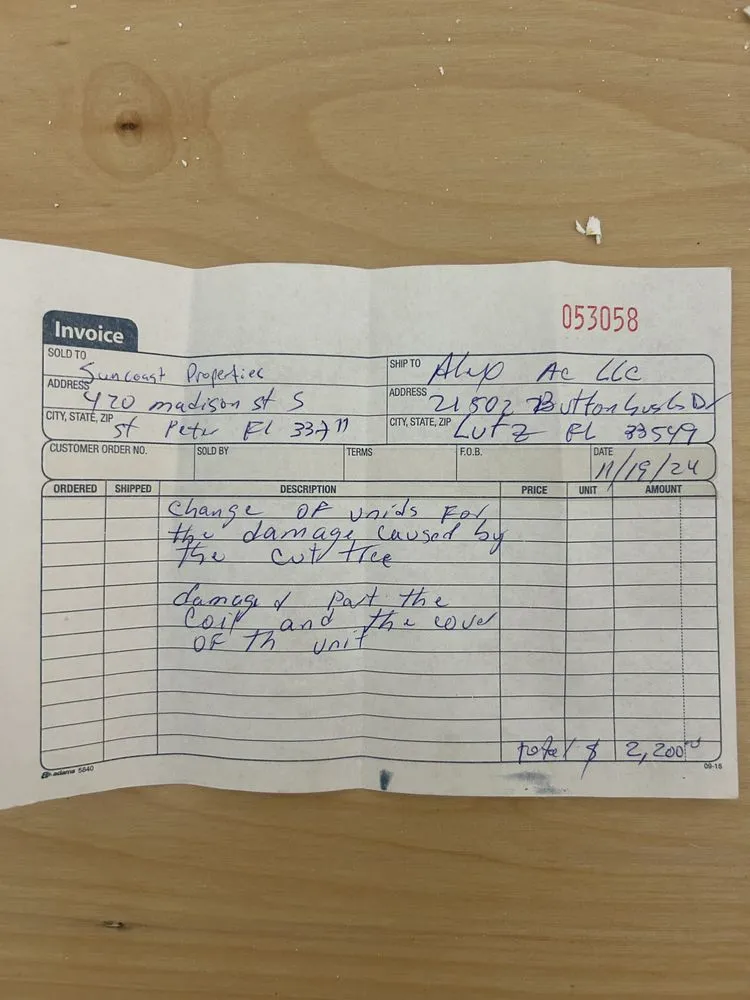 053058
Invoice
SOLD TO Suncoast Properties
ADDRESS 420 madison st S
CITY, STATE, ZIP st Peter Fl 33711
SHIP TO AC LLC
ADDRESS 21502 Dr
CITY, STATE, ZIP Lutz FL 33549
CUSTOMER ORDER NO. SOLD BY TERMS F.O.B. DATE 11/19/24
ORDERED SHIPPED DESCRIPTION PRICE UNIT AMOUNT
change OF unids For
the damage caused by
the cut tree
damaged part the
coil and the cover
OF th unit
total $ 2,200
adams 5840
09-16